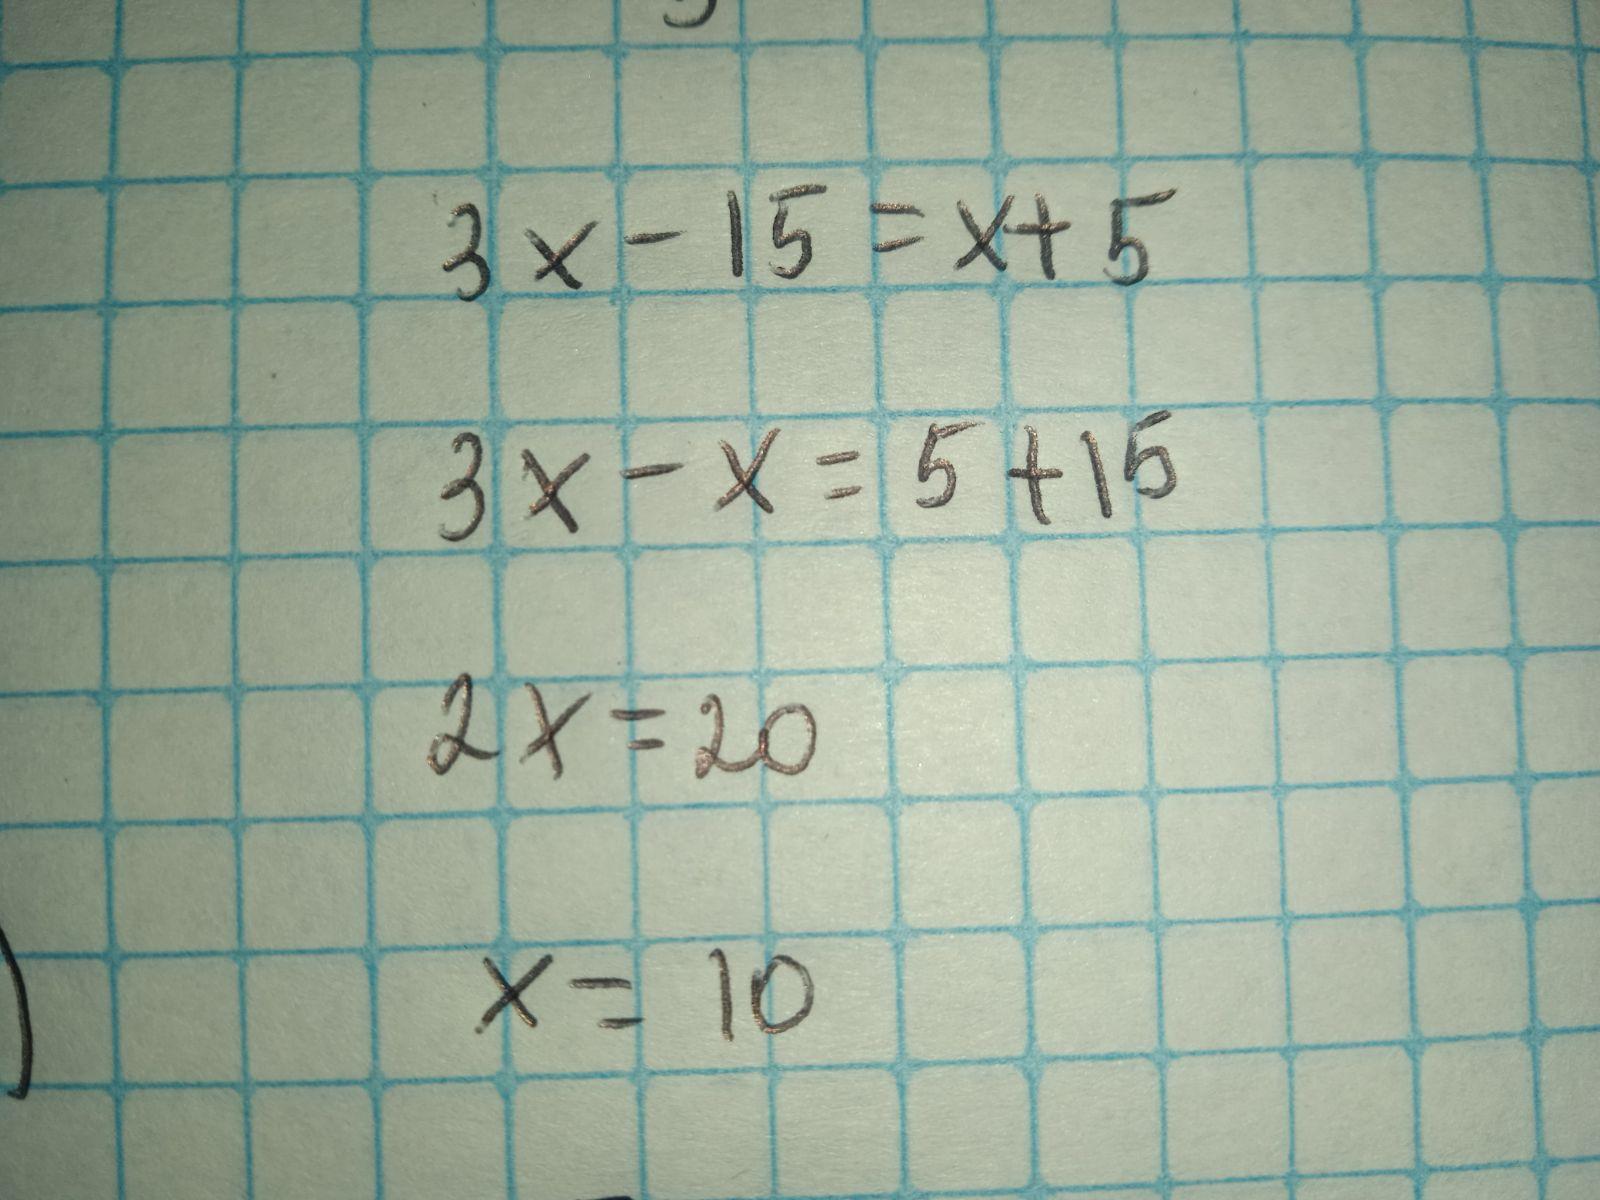 3x - 15 = x + 5
3x - x = 5 + 15
2x = 20
x = 10